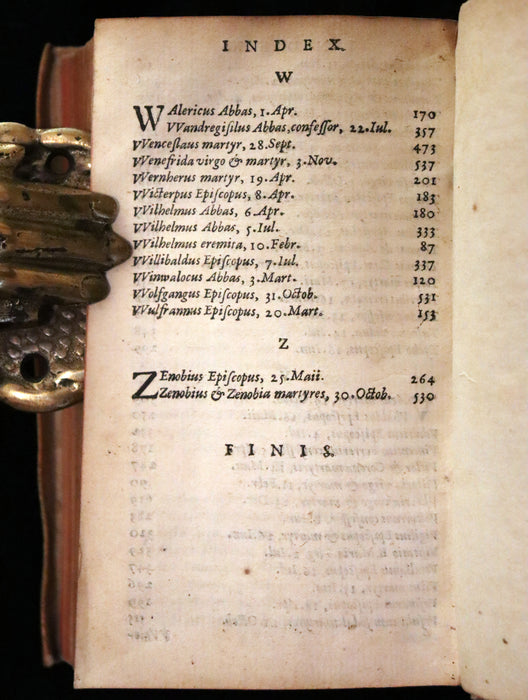 INDEX.
W
WAlericus Abbas, 1. Apr. 170
VVandregisilus Abbas, confeſſor, 22. Iul. 357
VVenceſlaus martyr, 28. Sept. 473
VVenefrida virgo & martyr, 3. Nov. 537
VVernherus martyr, 19. Apr. 201
VVicterpus Epiſcopus, 8. Apr. 183
VVilhelmus Abbas, 6. Apr. 180
VVilhelmus Abbas, 5. Iul. 333
VVilhelmus eremita, 10. Febr. 87
VVillibaldus Epiſcopus, 7. Iul. 337
VVinwalocus Abbas, 3. Mart. 120
VVolfgangus Epiſcopus, 31. Octob. 531
VVulfrannus Epiſcopus, 20. Mart. 153
Z
ZEnobius Epiſcopus, 25. Maii. 264
Zenobius & Zenobia martyres, 30. Octob. 530
FINIS.